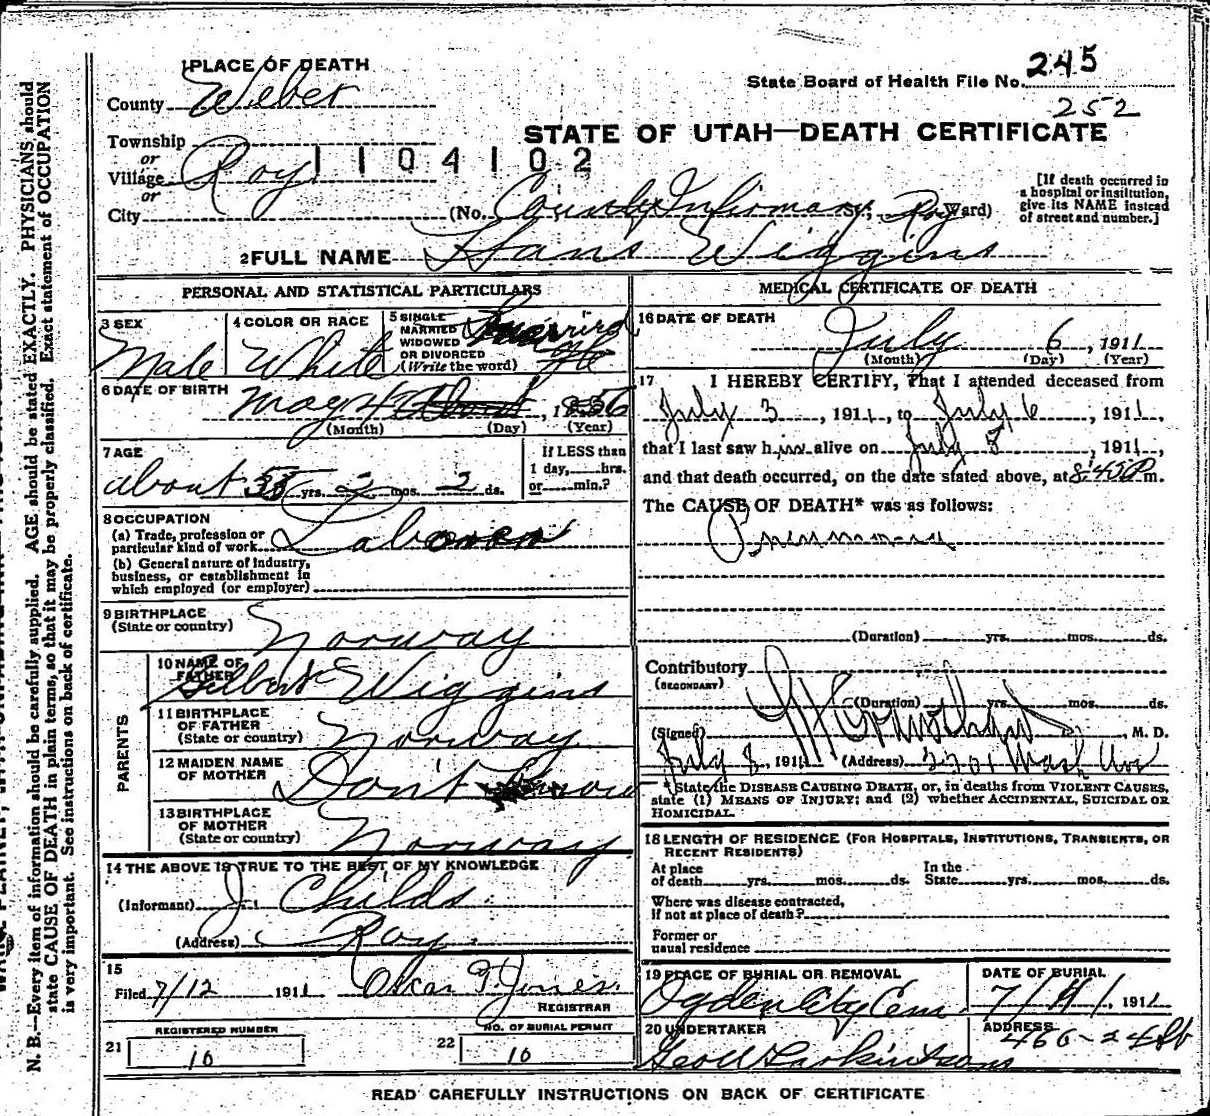 1 PLACE OF DEATH
County Weber
State Board of Health File No. 245
252
Township
or
Village Roy
or
City
1104102
STATE OF UTAH—DEATH CERTIFICATE
(No. County Infirmary St.; Roy Ward)
[If death occurred in
a hospital or institution,
give its NAME instead
of street and number.]
2 FULL NAME Hans Wiggins
PERSONAL AND STATISTICAL PARTICULARS
3 SEX
Male
4 COLOR OR RACE
White
5 SINGLE
MARRIED
WIDOWED
OR DIVORCED
(Write the word)
6 DATE OF BIRTH
May 4 About, 1856
(Month) (Day) (Year)
7 AGE
about 55 yrs. 2 mos. 2 ds.
If LESS than
1 day, hrs.
or min.?
8 OCCUPATION
(a) Trade, profession or
particular kind of work Laborer
(b) General nature of industry,
business, or establishment in
which employed (or employer)
9 BIRTHPLACE
(State or country) Norway
PARENTS
10 NAME OF
FATHER Gilbert Wiggins
11 BIRTHPLACE
OF FATHER
(State or country) Norway
12 MAIDEN NAME
OF MOTHER Don't Know
13 BIRTHPLACE
OF MOTHER
(State or country) Norway
14 THE ABOVE IS TRUE TO THE BEST OF MY KNOWLEDGE
(Informant) J. Childs
(Address) Roy.
15
Filed 7/12 1911 Oscar F. Jones.
REGISTRAR
REGISTERED NUMBER
21 10
NO. OF BURIAL PERMIT
22 10
MEDICAL CERTIFICATE OF DEATH
16 DATE OF DEATH
July 6, 1911
(Month) (Day) (Year)
17 I HEREBY CERTIFY, That I attended deceased from
July 3, 1911, to July 6, 1911,
that I last saw him alive on July 5, 1911,
and that death occurred, on the date stated above, at 8:45 P m.
The CAUSE OF DEATH* was as follows:
Pneumonia
(Duration) yrs. mos. ds.
Contributory
(SECONDARY)
(Duration) yrs. mos. ds.
(Signed) , M. D.
July 8, 1911 (Address) 2201 Wash Ave
*State the DISEASE CAUSING DEATH, or, in deaths from VIOLENT CAUSES,
state (1) MEANS OF INJURY; and (2) whether ACCIDENTAL, SUICIDAL OR
HOMICIDAL.
18 LENGTH OF RESIDENCE (FOR HOSPITALS, INSTITUTIONS, TRANSIENTS, OR
RECENT RESIDENTS)
At place
of death yrs. mos. ds.
In the
State yrs. mos. ds.
Where was disease contracted,
if not at place of death?
Former or
usual residence
19 PLACE OF BURIAL OR REMOVAL
Ogden City Cem.
DATE OF BURIAL
7/11/, 1911
20 UNDERTAKER
Geo W Larkin & Sons
ADDRESS
460-24 St
READ CAREFULLY INSTRUCTIONS ON BACK OF CERTIFICATE
N. B.—Every item of information should be carefully supplied. AGE should be stated EXACTLY. PHYSICIANS should
state CAUSE OF DEATH in plain terms, so that it may be properly classified. Exact statement of OCCUPATION
is very important. See instructions on back of certificate.